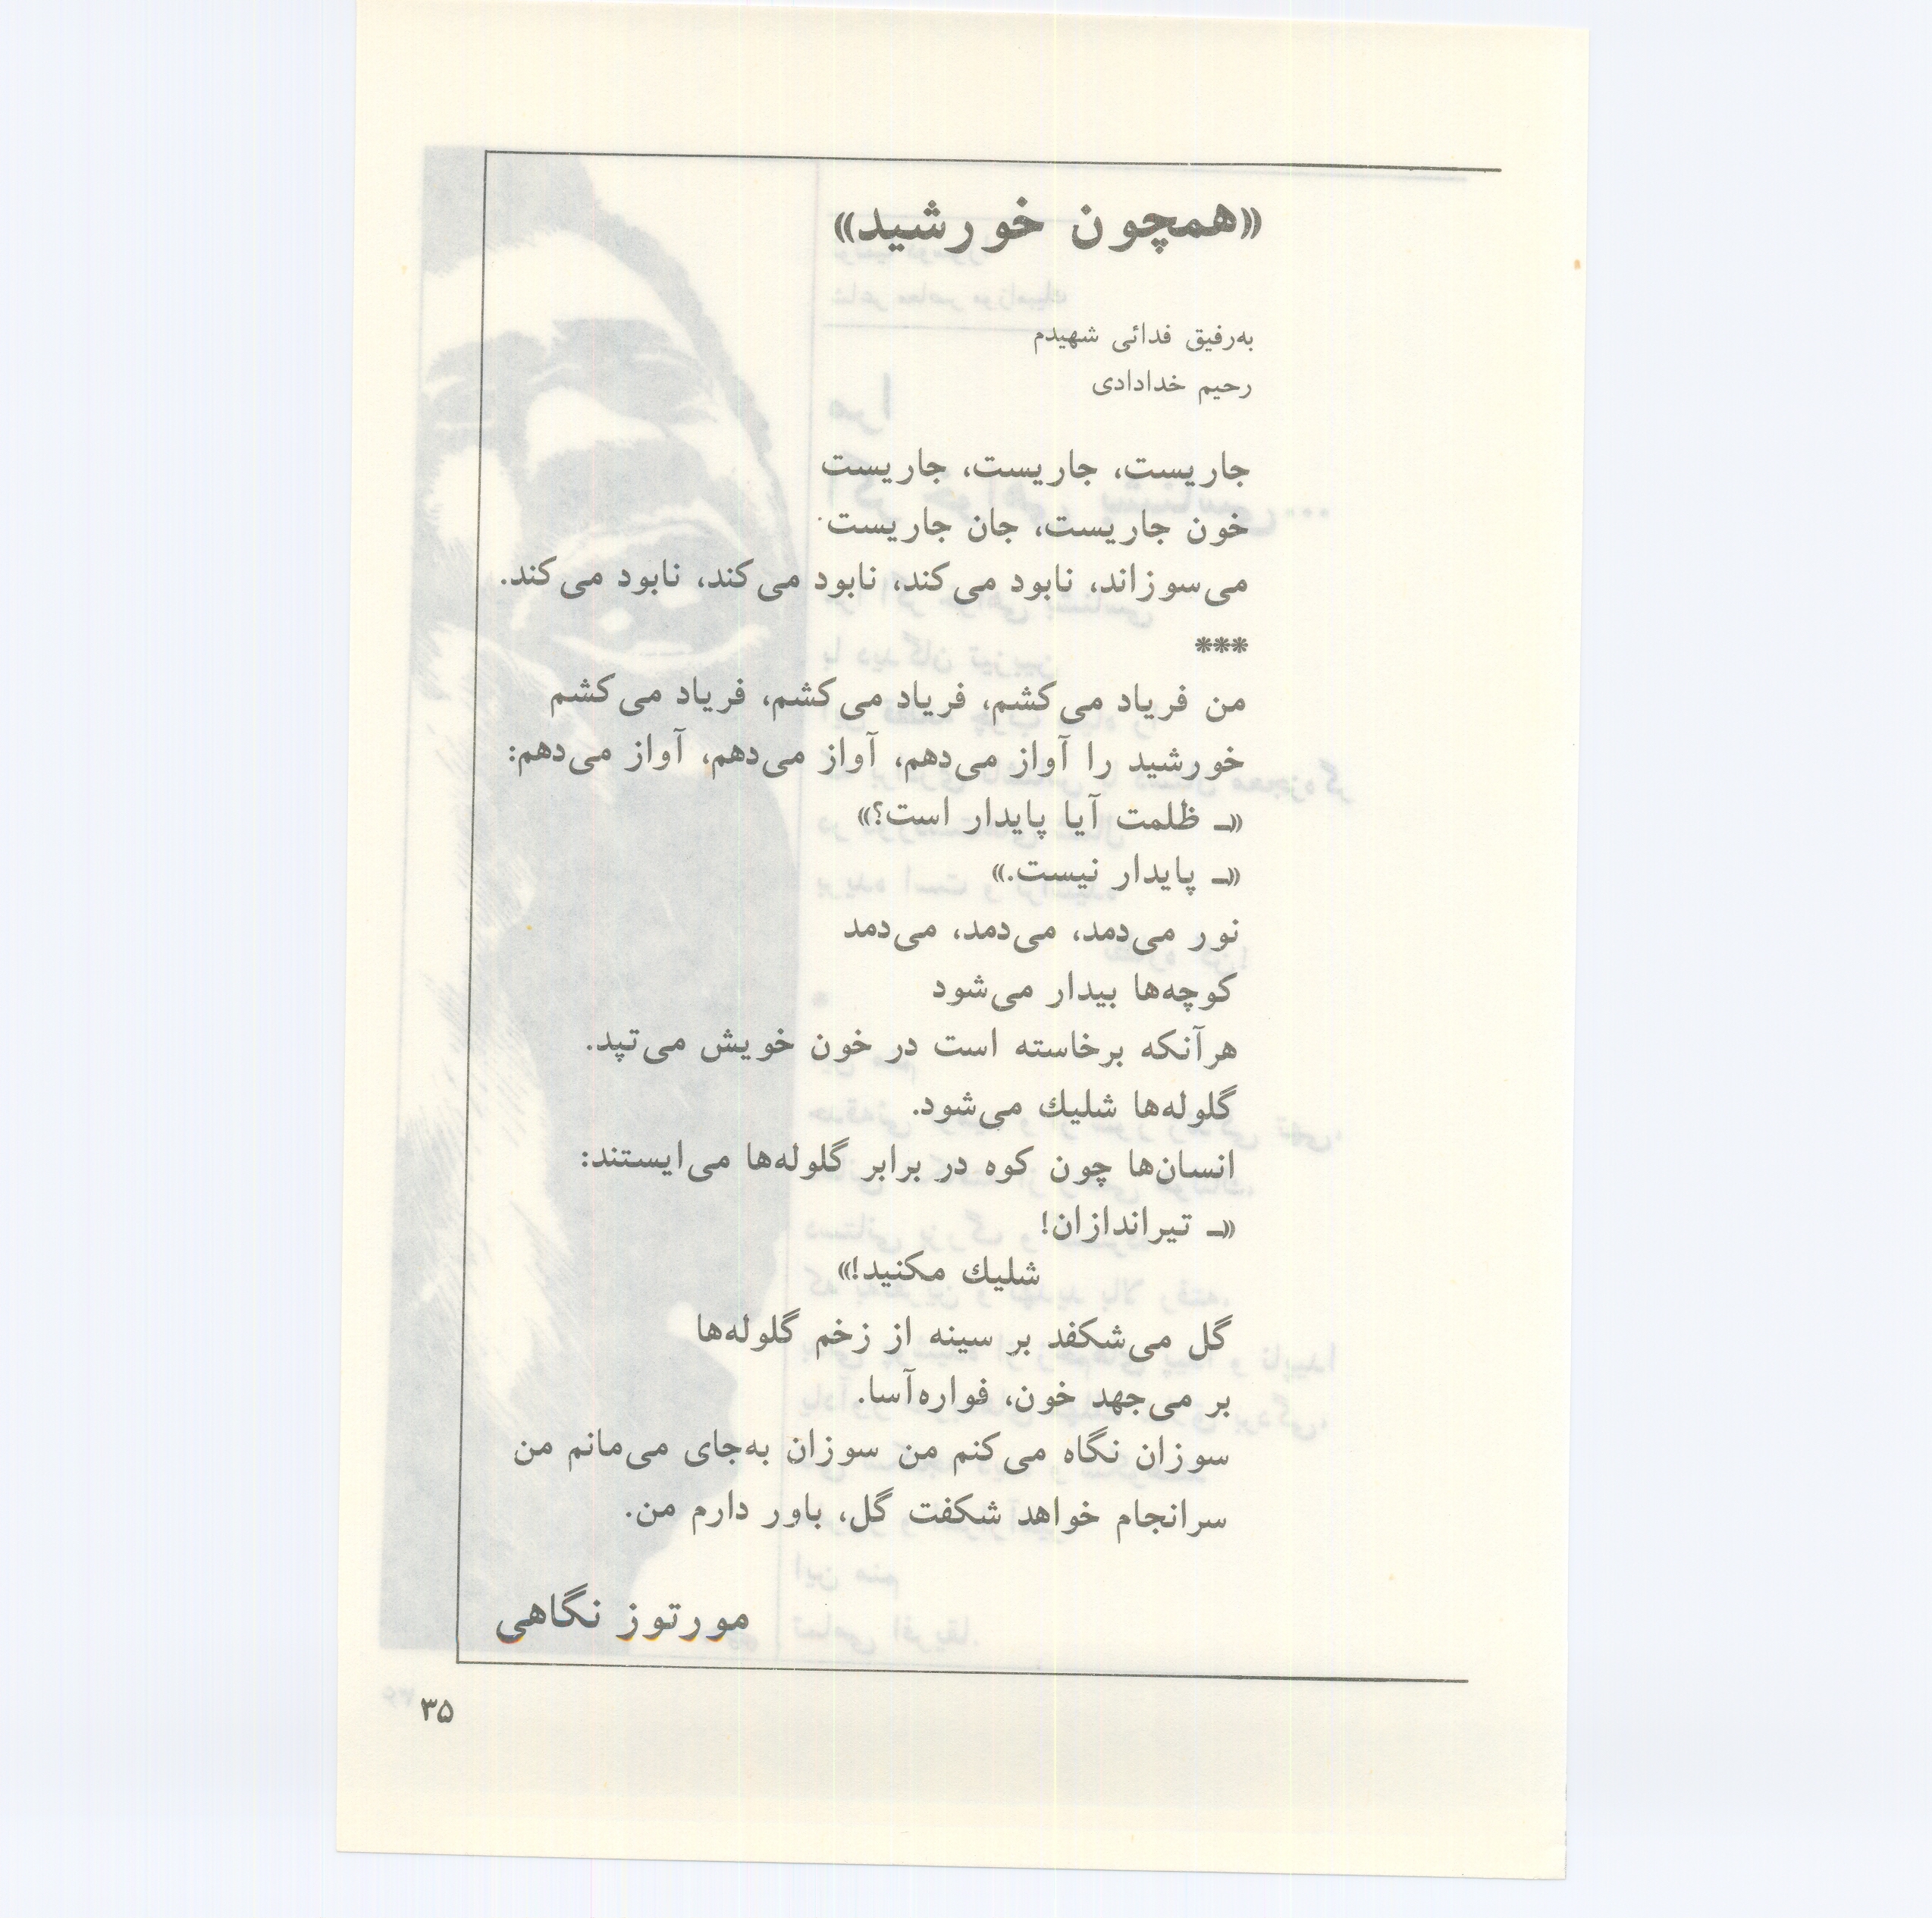 «همچون خورشید»
به‌رفیق فدائی شهیدم
رحیم خدادادی
جاریست، جاریست، جاریست
خون جاریست، جان جاریست
می‌سوزاند، نابود می‌کند، نابود می‌کند، نابود می‌کند.
***
من فریاد می‌کشم، فریاد می‌کشم، فریاد می‌کشم
خورشید را آواز می‌دهم، آواز می‌دهم، آواز می‌دهم:
«ـ ظلمت آیا پایدار است؟»
«ـ پایدار نیست.»
نور می‌دمد، می‌دمد، می‌دمد
کوچه‌ها بیدار می‌شود
هرآنکه برخاسته است در خون خویش می‌تپد.
گلوله‌ها شلیك می‌شود.
انسان‌ها چون کوه در برابر گلوله‌ها می‌ایستند:
«ـ تیراندازان!
شلیك مکنید!»
گل می‌شکفد بر سینه از زخم گلوله‌ها
بر می‌جهد خون، فواره‌آسا.
سوزان نگاه می‌کنم من سوزان به‌جای می‌مانم من
سرانجام خواهد شکفت گل، باور دارم من.
مورتوز نگاهی
۳۵